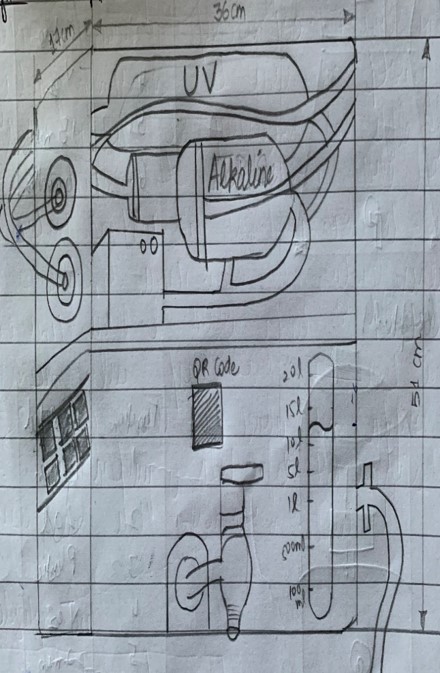 36cm
17cm
UV
Alkaline
QR Code
20l
15l
10l
5l
1l
500ml
100
ml
51 cm